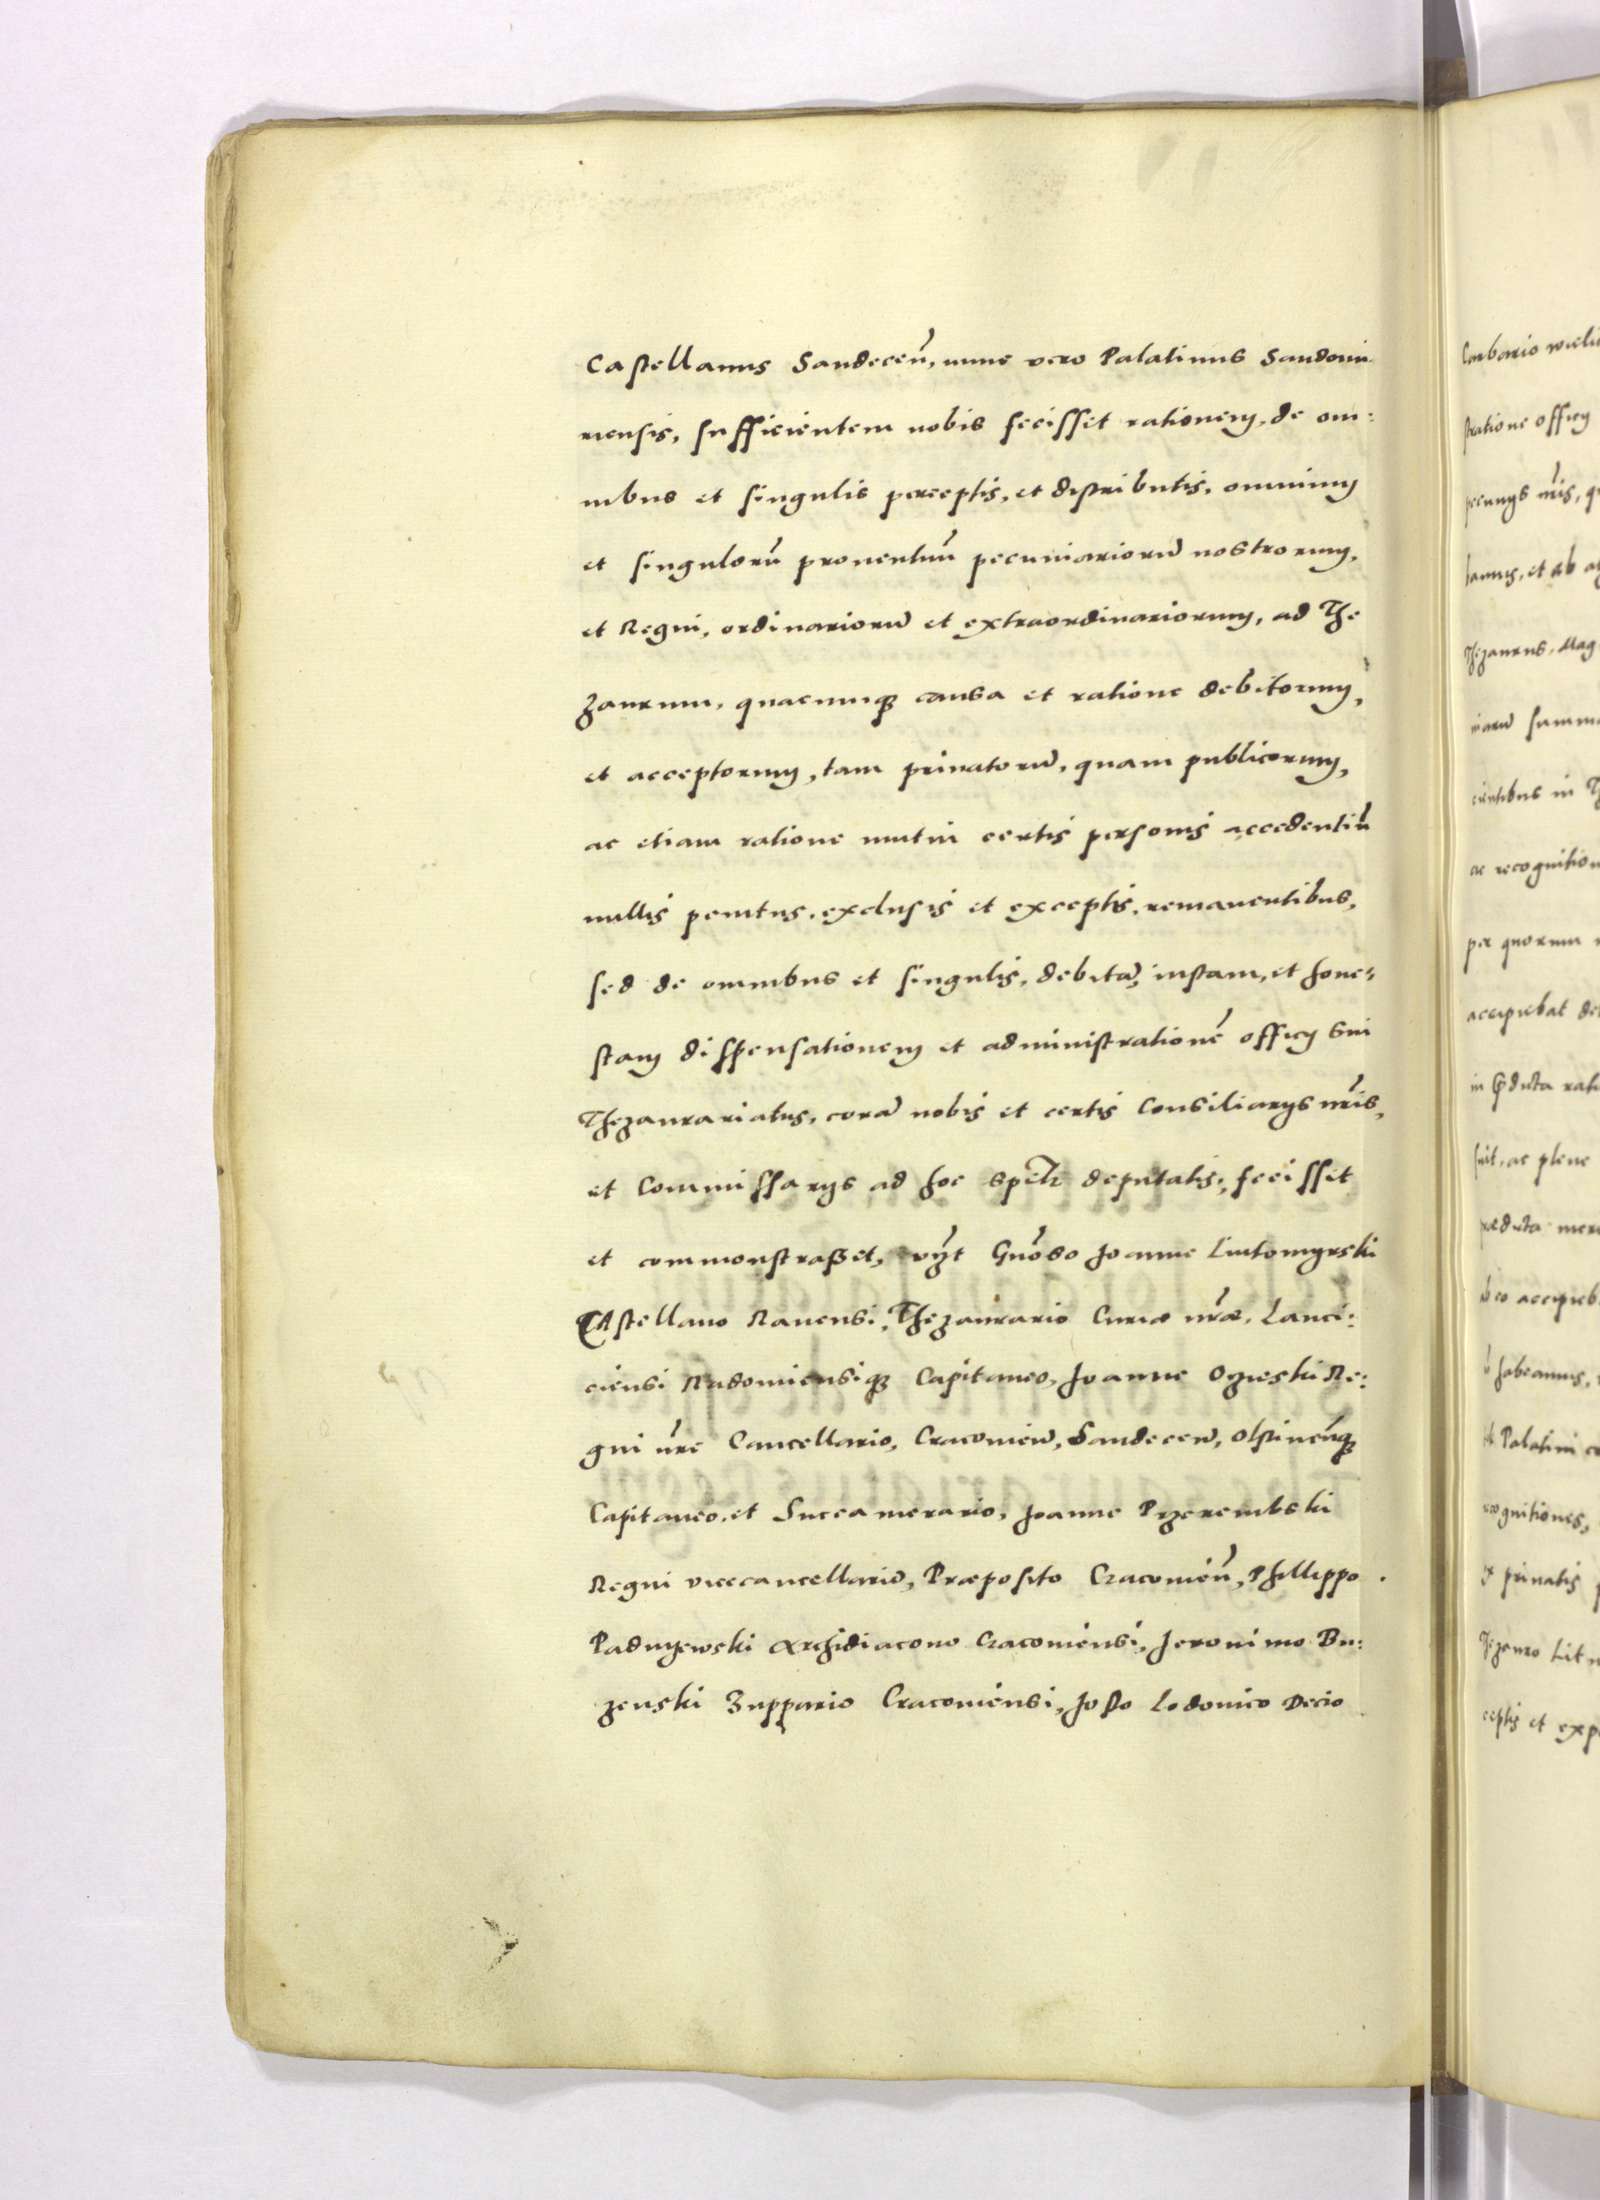 Castellanus Sandeceñ, nunc vero Palatinus Sandomi
riensis, sufficientem nobis fecisset rationem, de om:
nibus et singulis perceptis, et distributis, omnium
et singulorũ proventuũ pecuniariorũ nostrorum,
et Regni, ordinariorũ et extraordinariorum, ad The
zaurum, quacunq; causa et ratione debitorum,
et acceptorum, tam privatorũ, quam publicorum,
ac etiam ratione mutui certis personis accedentiũ
nullis penitus, exclusis et exceptis, remanentibus,
sed de omnibus et singulis, debitã, iustam, et hone:
stam dispensationem et administrationẽ officij sui
Thezaurariatus, corã nobis et certis Consiliarijs nr̃is,
et Commissarijs ad hoc sp̃etr deputatis, fecisset
et commonstraßet, vz̃t Gñoso Joanne Lutomyrski
CAstellano Ravensi, Thezaurario Curiæ nr̃æ, Lanci:
ciensi Radomiensiq; Capitaneo, Joanne Oczieski Re:
gni nr̃e Cancellario, Cracovieñ, Sandeceñ, Olstineñq;
Capitaneo, et Succamerario, Joanne Przerembski
Regni vicecancellario, Præposito Cracovieñ, Phillippo
Padniewski Archidiacono Cracoviensi, Jeronimo Bu:
zenski Zuppario Cracoviensi, Josto Lodovico Decio
Carbario
stratione officij
hamus, et ab
Thezaurus, Mag
ciarũ summ
cientibus in
ac recognition
per quorum
accipiebat
fuit, ac plene
eo accipieb
habeamus,
Palatini
recognitiones,
privatis
ceptis et exp